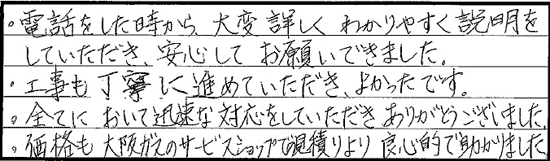 ・電話をした時から、大変詳しくわかりやすく説明を
していただき、安心してお願いできました。
・工事も丁寧に進めていただき、よかったです。
。全てにおいて迅速な対応をしていただきありがとうございました。
。価格も大阪ガスのサービスショップで見積りより良心的で助かりました